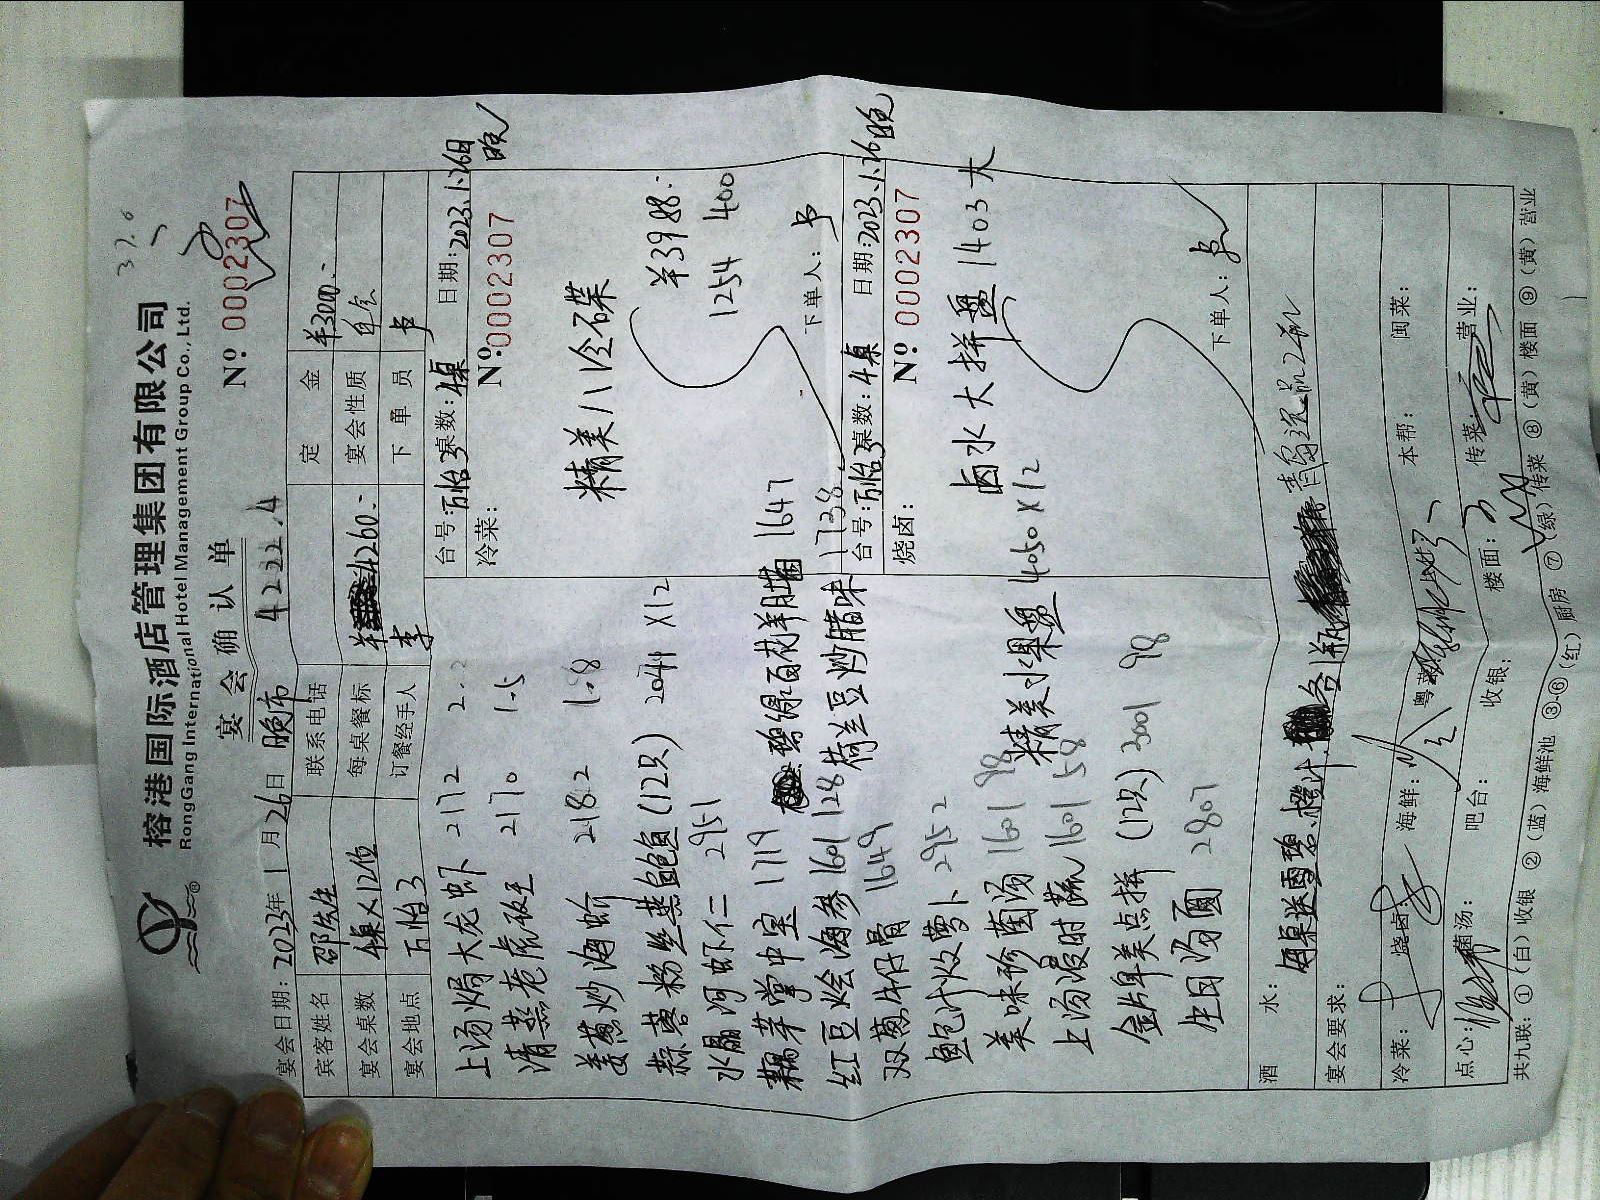 榕港国际酒店管理集团有限公司
RongGang International Hotel Management Group Co., Ltd.
宴会确认单
4222.4
Nº 0002307
宴会日期: 2023年 1月 26日 晚市
宾客姓名 邵先生 联系电话 定金 ¥3000.-
宴会桌数 4桌×12位 每桌餐标 ¥4260.- 宴会性质
宴会地点 万怡3 订餐经手人 李 下单员 卢
上汤焗大龙虾 2172
清蒸老虎斑 2170
姜葱炒海蛤 2182
蒜蓉粉丝蒸鲍鱼(12只) ×12
水晶河虾仁 2951
藕芽掌中宝 1719
碧绿百花羊肚菌 1647
红豆烩海参 1601 128
荷兰豆炒腊味 1738
双葱牛仔骨 1649
鲍汁收萝卜 2952
美味珍菌汤 1601 98
精美水果盘 4050×12
上汤浸时蔬 1601 58
金牌美点拼(12只) 3001 98
生日汤面 2807
台号: 万怡3 桌数: 4桌 日期: 2023.1.26日晚
冷菜:
Nº: 0002307
精美八冷碟
¥3988.-
1254 400
下单人: 卢
台号: 万怡3 桌数: 4桌 日期: 2023.1.26晚
烧卤:
Nº 0002307
卤水大拼盘 1403 大
下单人: 卢
酒水: 每桌送雪碧.橙汁 各1瓶
宴会要求:
冷菜: 烧卤: 海鲜: 粤菜: 本帮: 闽菜:
点心: 菌汤: 吧台: 收银: 楼面: 传菜: 营业:
共九联: ①(白)收银 ②(蓝)海鲜池 ③-⑥(红)厨房 ⑦(绿)传菜 ⑧(黄)楼面 ⑨(黄)营业